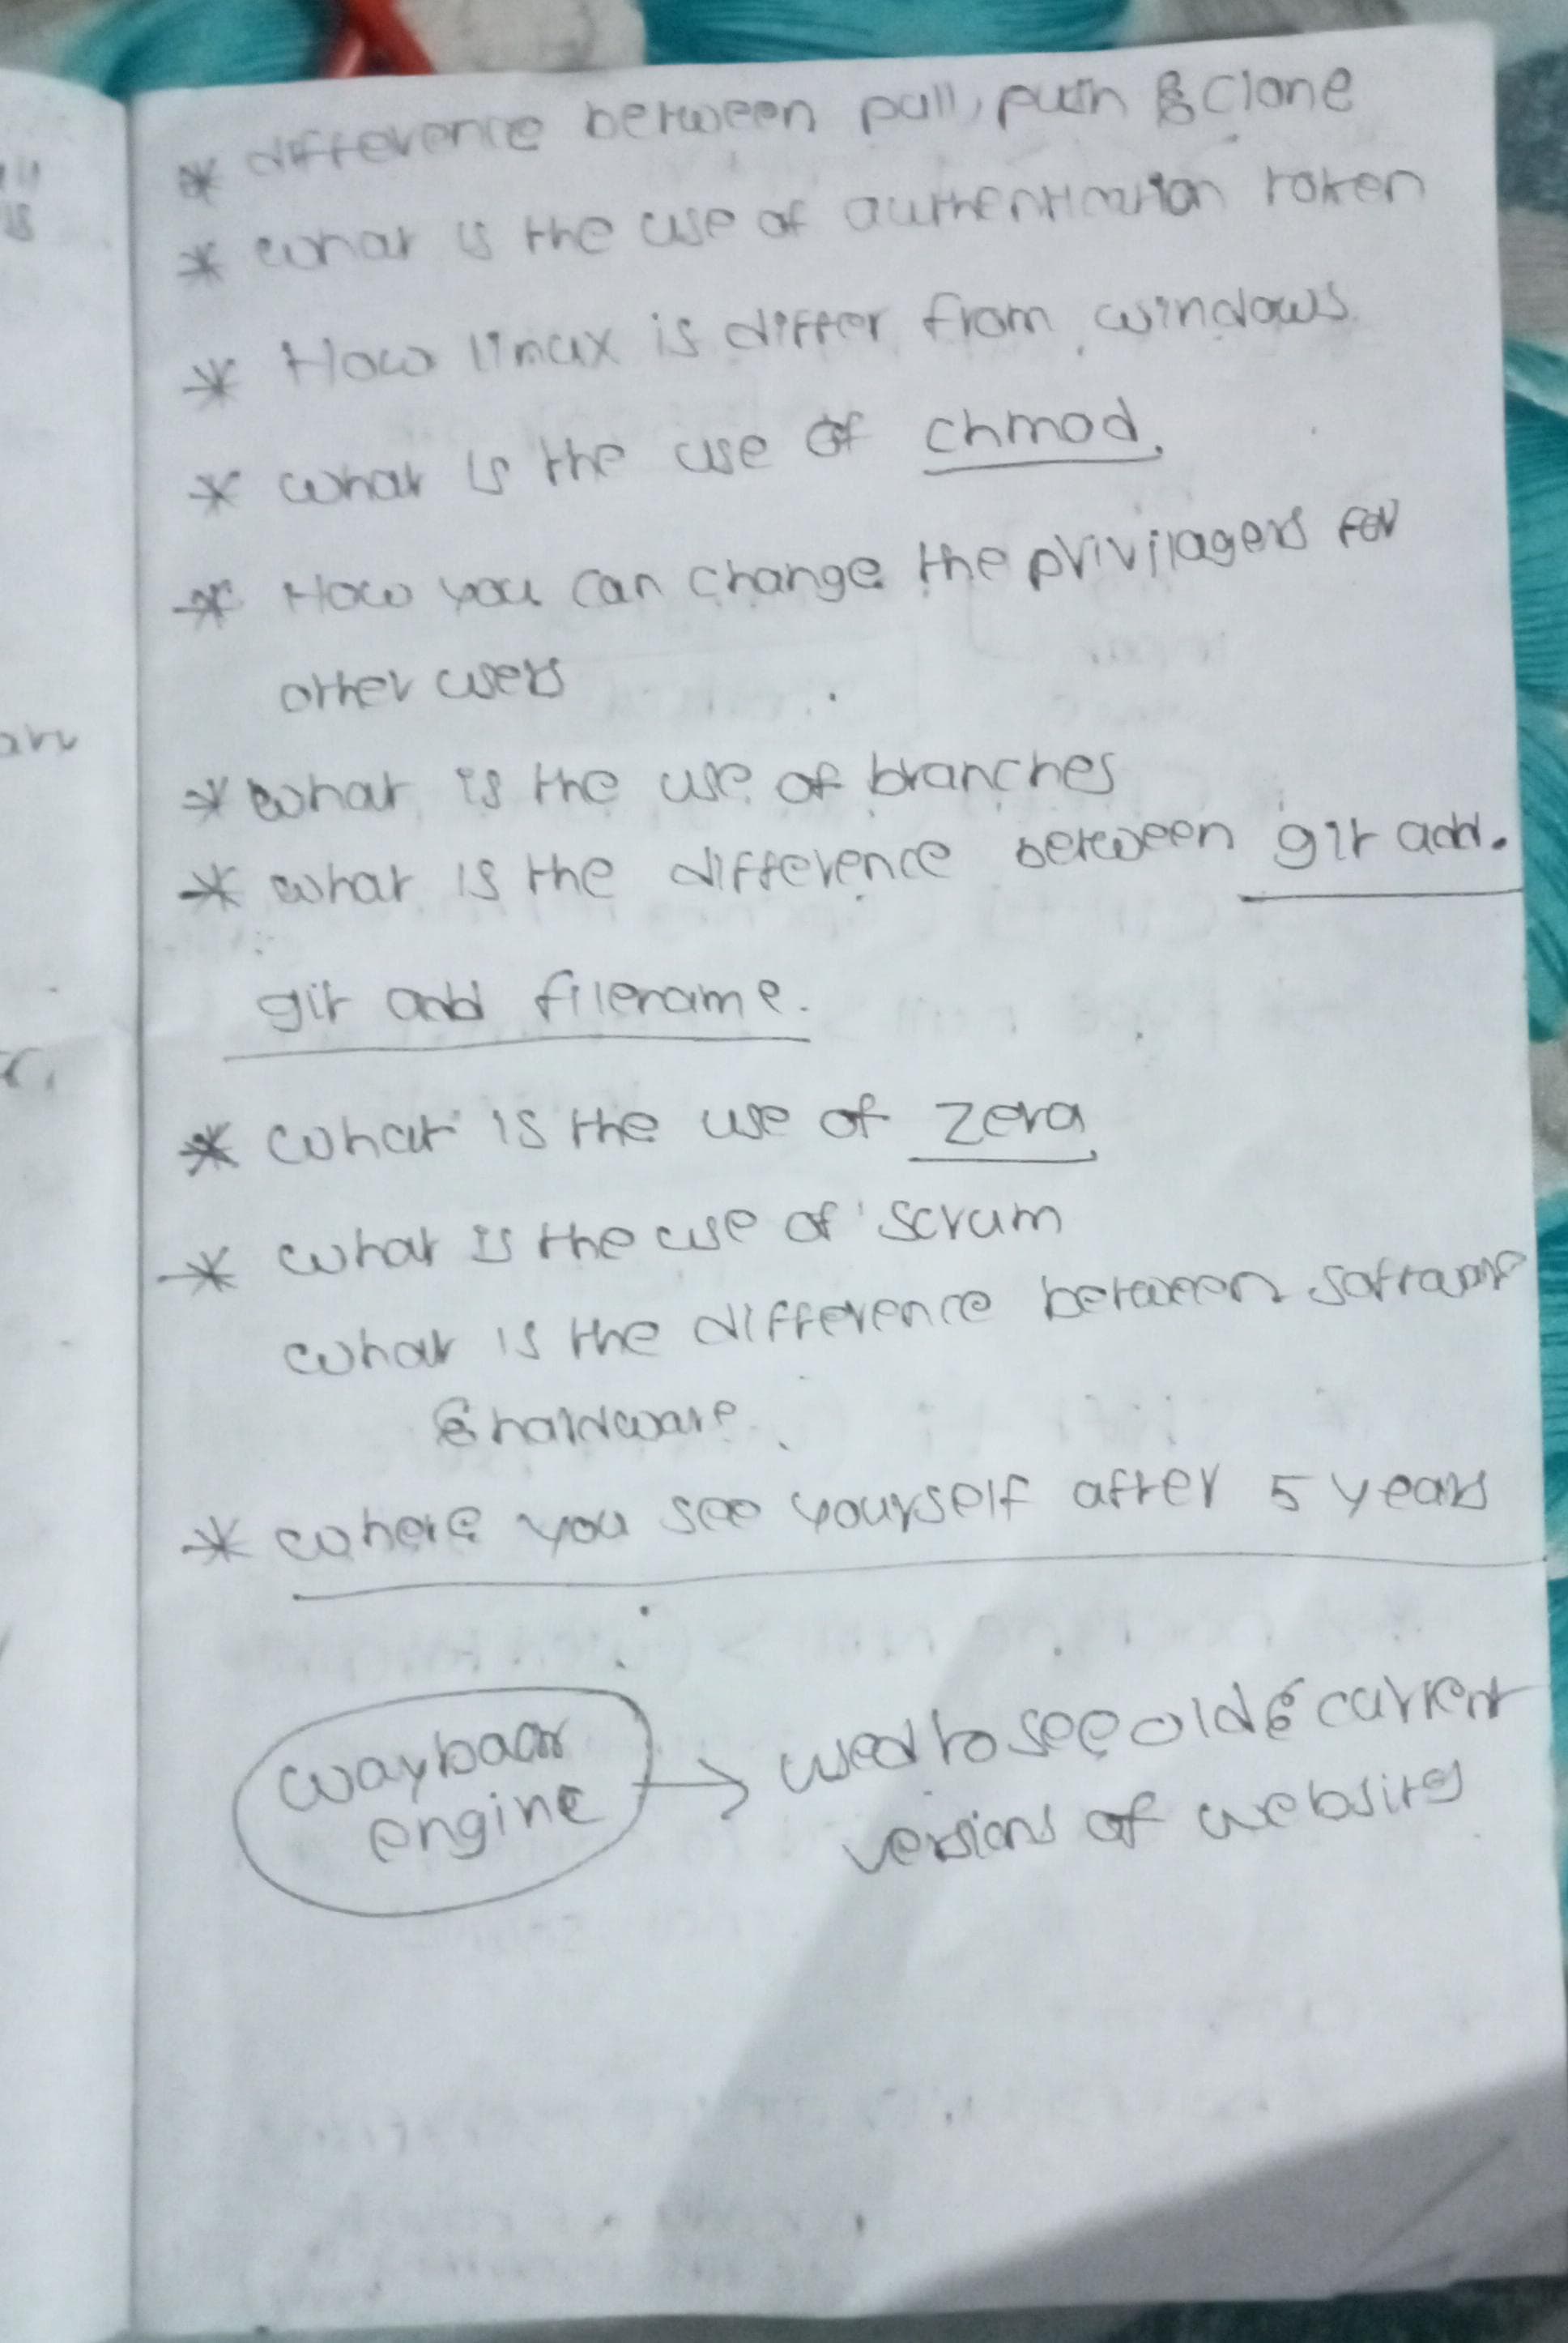 * difference between pull, push & clone
* what is the use of authentication token
* How linux is differ from windows.
* what is the use of chmod.
* How you can change the privilagers for
other users
* what is the use of branches
* what is the difference between git add.
git add filename.
* what is the use of
* what is the use of scrum
what is the difference between software
& hardware.
* where you see yourself after 5 years
engine → used to see old & current
versions of websites